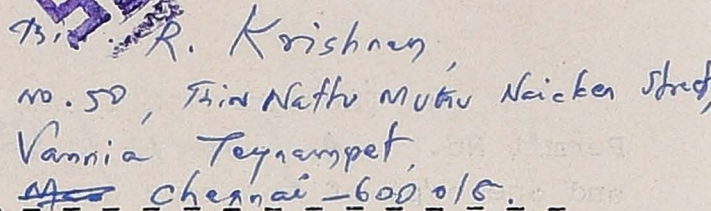 Thi. R. Krishnan,
No. 50, Thiru Nattu Muthu Naicken Street,
Vannia Teynampet,
Chennai - 600 018.